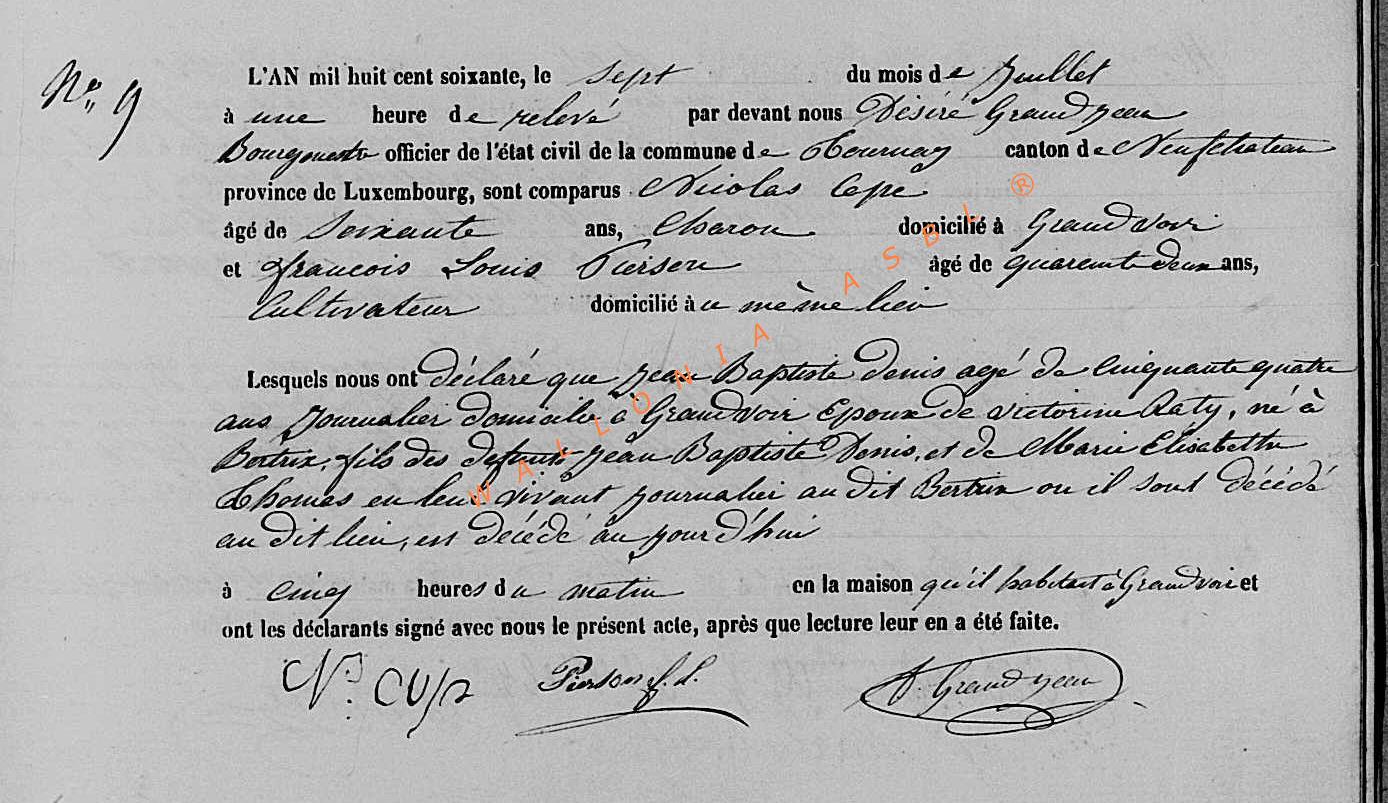 N° 9
L'AN mil huit cent soixante, le sept du mois de Juillet
à une heure de relevé par devant nous Désiré Grandjean
Bourgmestre officier de l'état civil de la commune de Tournay canton de Neufchateau
province de Luxembourg, sont comparus Nicolas
âgé de Soixante ans, Charon domicilié à Grandvoir
et françois Louis Pierson âgé de quarente deux ans,
Cultivateur domicilié à u même lieu
Lesquels nous ont déclaré que Jean Baptiste Denis agé de Cinquante quatre
ans Journalier domicile à Grandvoir Epoux de victorine Raty, né à
Bertrix, fils des defunts Jean Baptiste Denis, et de Marie Elisabethe
Thomas en leur vivant journalier au dit Bertrix ou il sont décédé
au dit lieu, est décédé au jourd'hui
à cinq heures du matin en la maison qu'il habitait à Grandvoir et
ont les déclarants signé avec nous le présent acte, après que lecture leur en a été faite.
N. Pierson f. L. D. Grandjean
WALLONIA ASBL ®